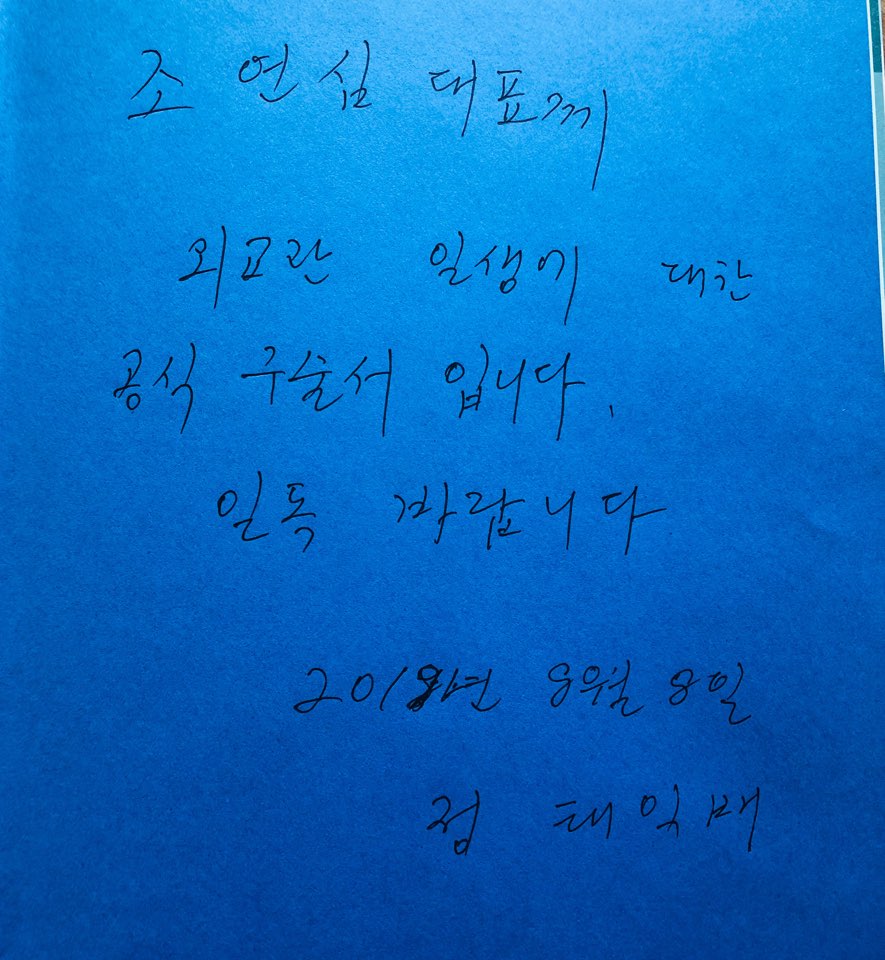 조 연심 대표께
외교관 일생에 대한
공식 구술서 입니다.
일독 바랍니다
2018년 8월 8일
정 태익 배